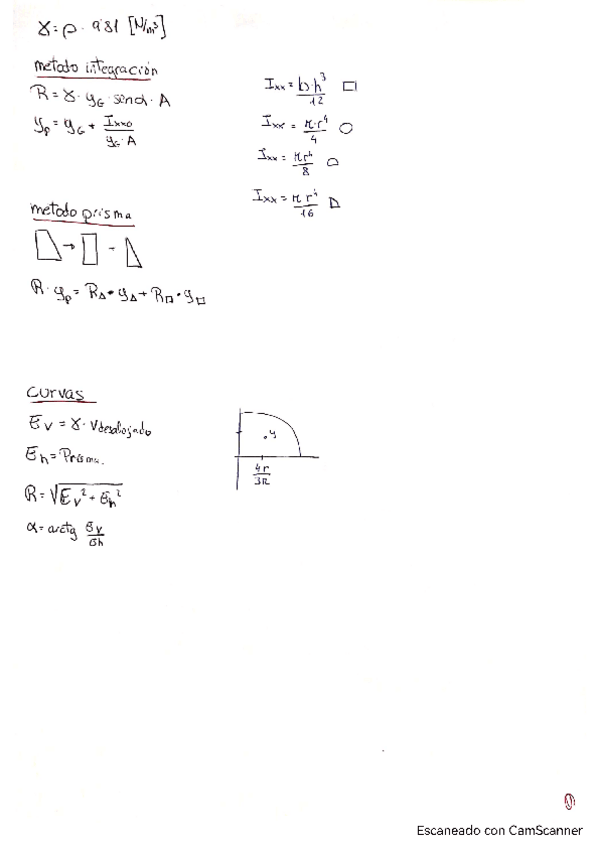 γ = ρ · 9'81 [N/m³]
metodo integración
R = γ · yG · senα · A
yp = yG + Ixxo / yG · A
Ixx = b·h³ / 12
Ixx = π·r⁴ / 4
Ixx = πr⁴ / 8
Ixx = π r⁴ / 16
metodo prisma
R · yp = R△ · y△ + R□ · y□
curvas
Ev = γ · Vdesalojado
Eh = Prisma.
R = √Ev² + Eh²
α = arctg Ev / Eh
4r / 3π
1
Escaneado con CamScanner